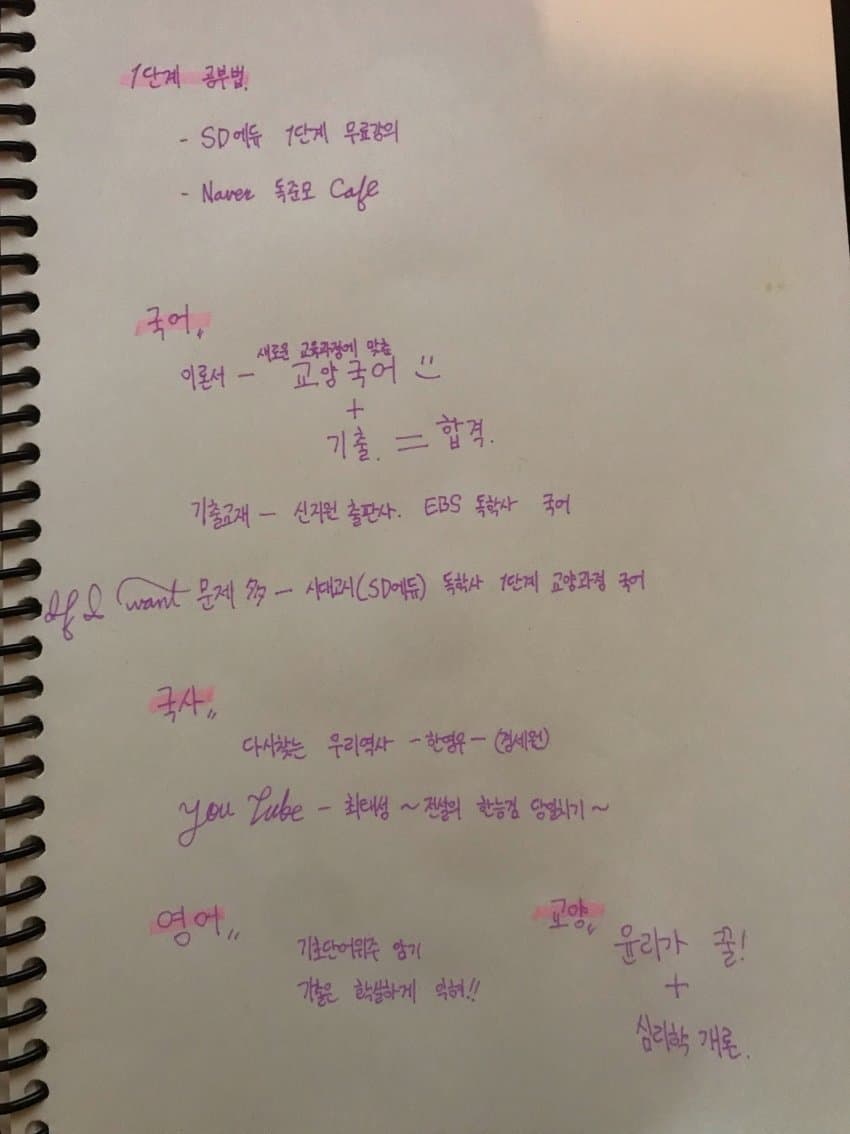 1단계 공부법.
- SD에듀 1단계 무료강의
- Naver 독준모 Cafe
국어〃
새로운 교육과정에 맞춘
이론서 - 교양국어
+
기출. = 합격.
기출교재 - 신지원 출판사. EBS 독학사 국어
If I want 문제 多 - 시대고시(SD에듀) 독학사 1단계 교양과정 국어
국사〃
다시찾는 우리역사 - 한영우 - (경세원)
YouTube - 최태성 ~ 전설의 한능검 당일치기 ~
영어〃
기초단어위주 암기
기출은 확실하게 익혀!!
교양〃
윤리가 꿀!
+
심리학 개론.